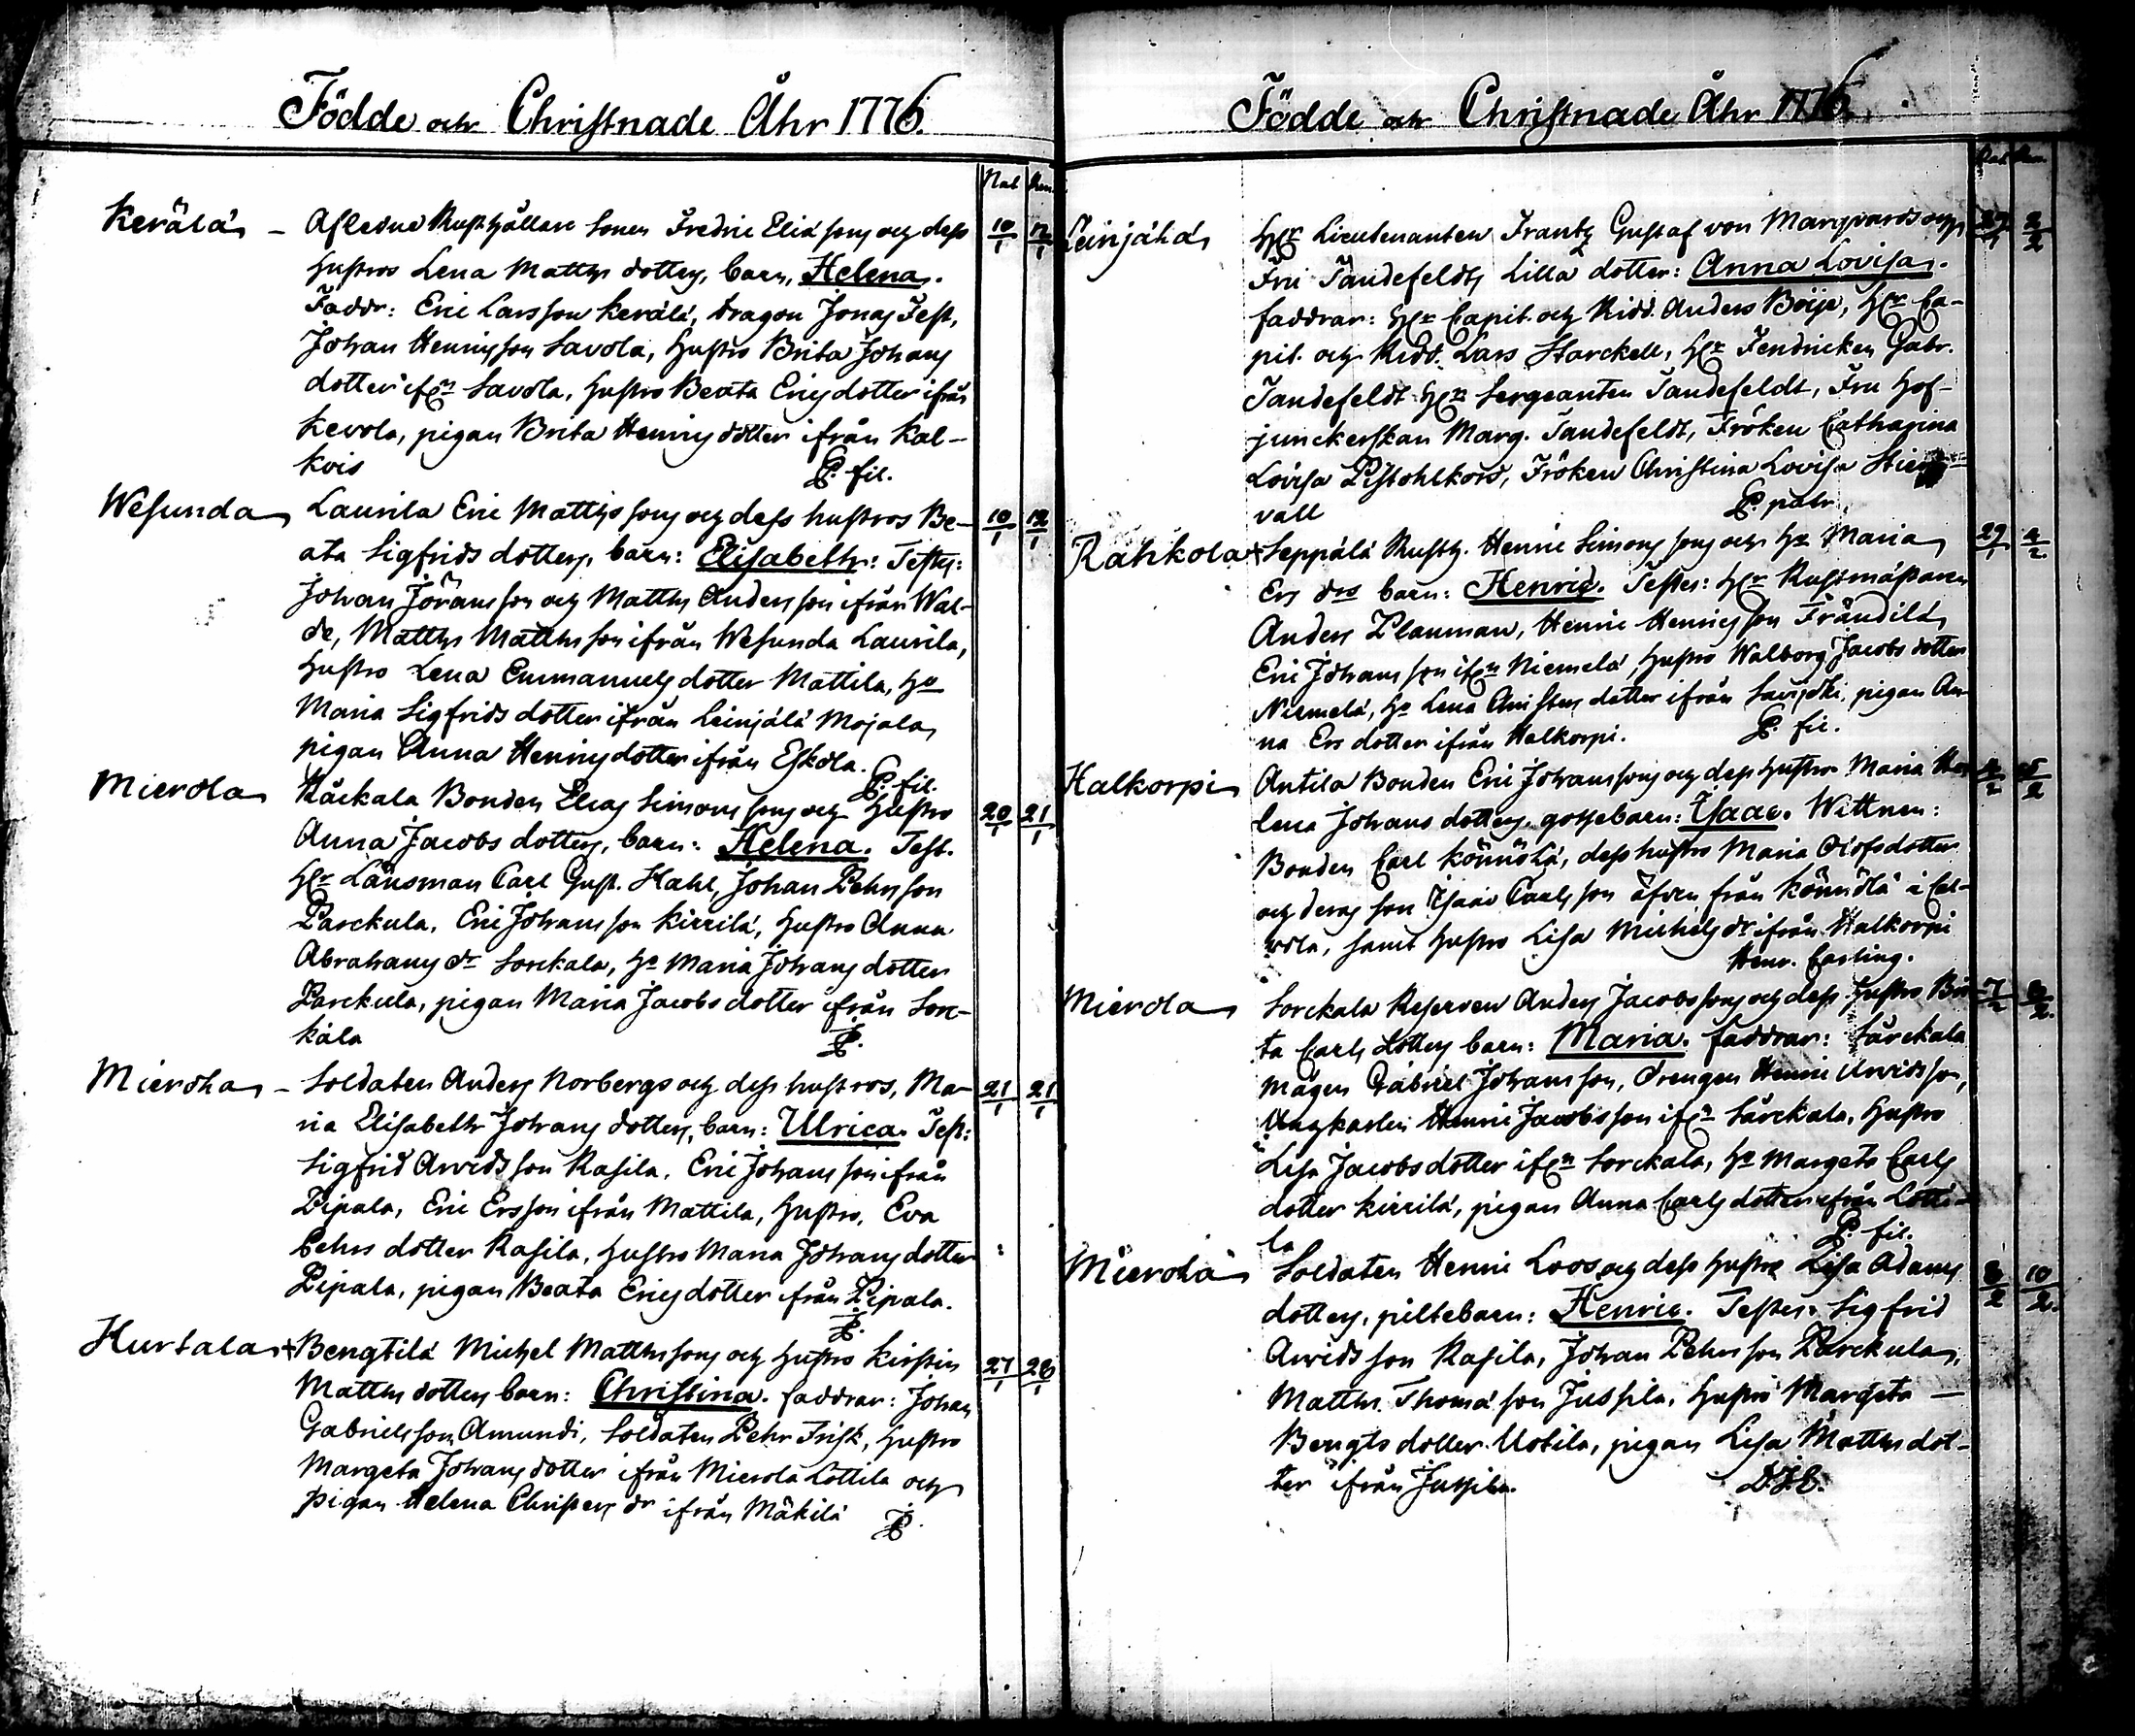 Födde och Christnade Åhr 1776.
Nat. Ren.
Kerälä – Afledne Rusthållare Sonen Fredric Eliæ sons och dess 10/1 12/1
hustros Lena Matths dotters, barn, Helena.
Faddr: Eric Larsson Kerälä, Dragon Jonas Fest,
Johan Henricsson Savola, hustro Brita Johans
dotter ifrn Savola, hustro Beata Ericsdotter ifrån
Kevola, pigan Brita Henricsdotter ifrån Kal-
kois P. fil.
Wesunda Laurila Eric Matths sons och dess hustros Be- 10/1 12/1
ata Sigfrids dotters, barn: Elisabeth: Testes:
Johan Jöransson och Matths Andersson ifrån Wal-
de, Matths Matthsson ifrån Wesunda Laurila,
hustro Lena Emmanuels dotter Mattila, ho
Maria Sigfrids dotter ifrån Leinjälä Mojala,
pigan Anna Henricsdotter ifrån Eskola.
P. fil.
Mierola Kåckala Bonden Elias Simons sons och hustro 20/1 21/1
Anna Jacobs dotters, barn: Helena. Test.
Hr Länsman Carl Gust. Hahl, Johan Pehrsson
Parckula, Eric Johansson Kirrilä, hustro Anna
Abrahams dr Sorckala, ho Maria Johans dotter
Parckula, pigan Maria Jacobs dotter ifrån Sorc-
kala P.
Mierola – Soldaten Anders Norbergs och dess hustros, Ma- 21/1 21/1
ria Elisabeth Johans dotters, barn: Ulrica. Test:
Sigfrid Arvidsson Rasila, Eric Johansson ifrån
Pipala, Eric Ersson ifrån Mattila, hustro, Eva
Pehrs dotter Rasila, hustro Maria Johans dotter
Pipala, pigan Beata Ericsdotter ifrån Pipala.
P.
Hurtala + Bengtilä Michel Matths sons och hustro Kirstin 27/1 28/1
Matths dotters barn: Christina. faddrar: Johan
Gabrielsson Amundi, Soldaten Pehr Frisk, hustro
Margeta Johans dotter ifrån Mierola Lottila och
pigan Helena Christers dr ifrån Mäkilä P.
Födde och Christnade Åhr 1776.
Nat. Ren.
Leinjälä Hr Lieutenanten Frantz Gustaf von Marqvards och 27/1 2/2
Fru Tandefeldts Lilla dotter: Anna Lovisa.
faddrar: Hr Capit. och Ridd. Anders Boije, Hr Ca-
pit. och Ridd. Lars Starckell, Hr Fendricken Gabr.
Tandefeldt Hr Sergeanten Tandefeldt, Fru Hof-
junckerskan Marg. Tandefeldt, Fröken Catharina
Lovisa Pistohlkors, Fröken Christina Lovisa
vall P. patr.
Rahkola + Seppälä Rusth. Henric Simons sons och ho Maria 29/1 4/2
Ers drs barn: Henric. Testes: Hr Rustmästaren
Anders Planman, Henric Henricsson Frändilä,
Eric Johansson ifrn Niemelä, hustro Walborg Jacobs dotter
Niemelä, ho Lena Christers dotter ifrån, pigan An-
na Ers dotter ifrån Halkorpi. P. fil.
Halkorpi Antila Bonden Eric Johanssons och dess hustro Maria He- 4/2 5/2
lena Johans dotters, gossebarn: Isaac. Wittnen:
Bonden Carl Könnölä, dess hustro Maria Olofsdotter
och deras son Isaac Carlsson äfven från Könnölä i Cal-
vola, samt hustro Lisa Michels dr ifrån Halkorpi
Henr. Carling.
Mierola Sorckala Reserven Anders Jacobssons och dess hustro Bri- 7/2 8/2
ta Carls dotters barn: Maria. faddrar: Särckala
mågen Gabriel Johansson, drengen Henric Arvidsson,
Ungkarlen Henric Jacobsson ifrn Särckala, hustro
Lisa Jacobsdotter ifrn Sorckala, ho Margeta Carls
dotter Kirrilä, pigan Anna Carls dotter ifrån Lotti-
la P. fil.
Mierola Soldaten Henric Loos och dess hustro Lisa Adams 8/2 10/2
dotters, piltebarn: Henric. Testes: Sigfrid
Arvidsson Rasila, Johan Pehrsson Parckula,
Matths Thomæson Jussila, hustro Margeta –
Bengts dotter Uotila, pigan Lisa Matths dot-
ter ifrån Jussila. D.J.C.